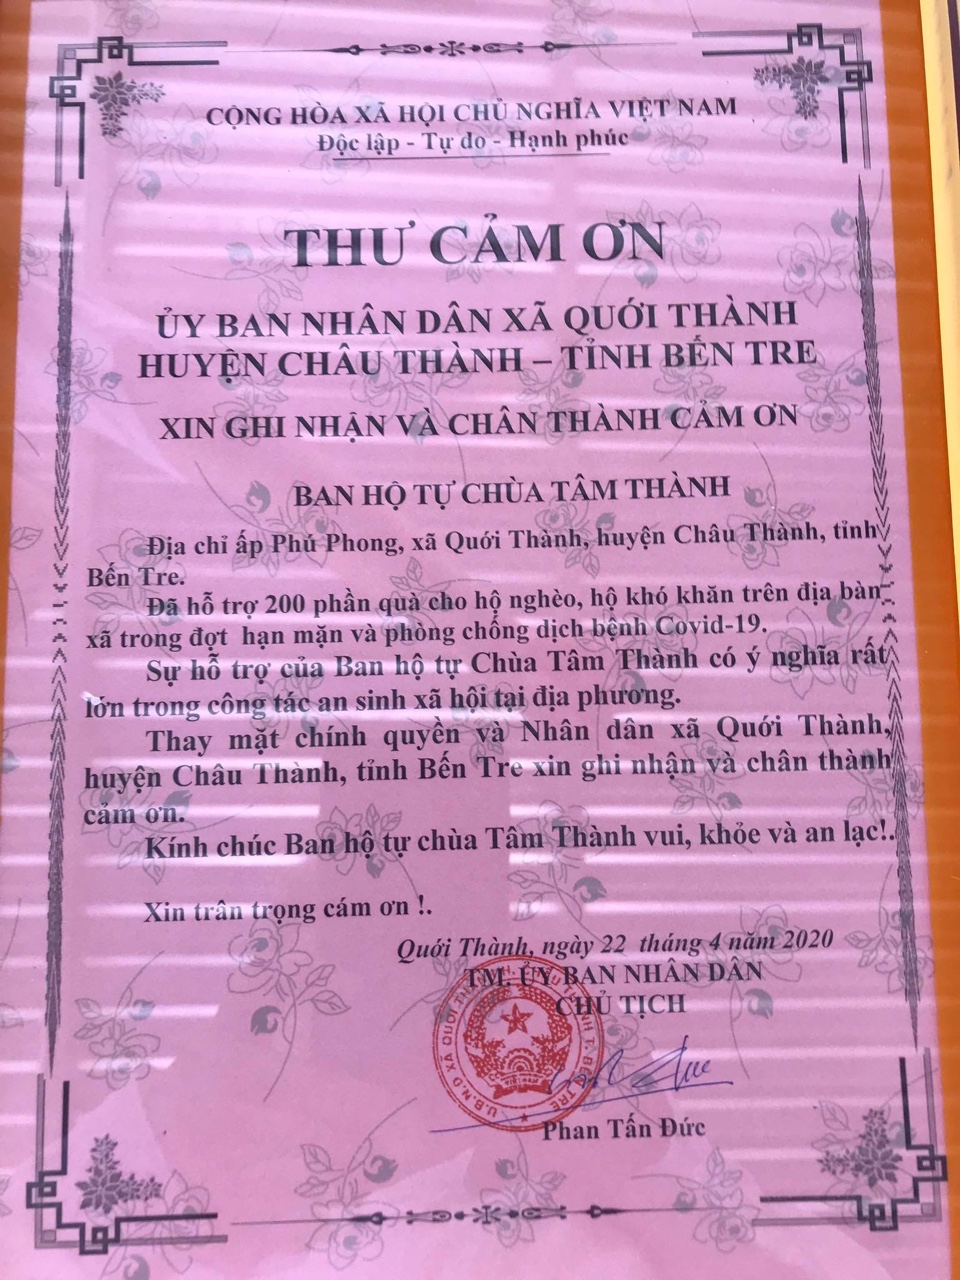 CỘNG HÒA XÃ HỘI CHỦ NGHĨA VIỆT NAM
Độc lập - Tự do - Hạnh phúc
THƯ CẢM ƠN
ỦY BAN NHÂN DÂN XÃ QUỚI THÀNH
HUYỆN CHÂU THÀNH – TỈNH BẾN TRE
XIN GHI NHẬN VÀ CHÂN THÀNH CẢM ƠN
BAN HỘ TỰ CHÙA TÂM THÀNH
Địa chỉ ấp Phú Phong, xã Quới Thành, huyện Châu Thành, tỉnh
Bến Tre.
Đã hỗ trợ 200 phần quà cho hộ nghèo, hộ khó khăn trên địa bàn
xã trong đợt hạn mặn và phòng chống dịch bệnh Covid-19.
Sự hỗ trợ của Ban hộ tự Chùa Tâm Thành có ý nghĩa rất
lớn trong công tác an sinh xã hội tại địa phương.
Thay mặt chính quyền và Nhân dân xã Quới Thành,
huyện Châu Thành, tỉnh Bến Tre xin ghi nhận và chân thành
cảm ơn.
Kính chúc Ban hộ tự chùa Tâm Thành vui, khỏe và an lạc!.
Xin trân trọng cám ơn !.
Quới Thành, ngày 22 tháng 4 năm 2020
TM. ỦY BAN NHÂN DÂN
CHỦ TỊCH
U.B.N.D XÃ QUỚI
T. BẾN TRE
Phan Tấn Đức